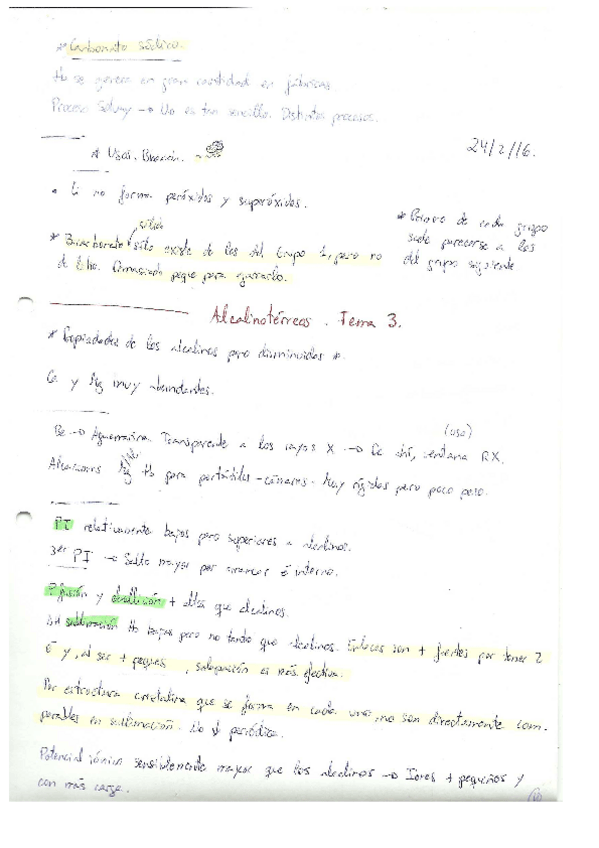 * Carbonato sódico.
No se genera en gran cantidad en fábricas.
Proceso Solvay → No es tan sencillo. Distintos procesos.
24/2/16.
* Usos.
• Li no forma peróxidos y superóxidos.
sólido
* Bicarbonato sólo existe de los del Grupo 1, pero no
de litio. Demasiado peque para
* Primero de cada grupo
suele parecerse a los
del grupo siguiente
Alcalinotérreos. Tema 3.
* Propiedades de los alcalinos pero disminuidas *.
Ca y Mg muy abundantes.
(uso)
Be → Aguamarina. Transparente a los rayos X → De ahí, ventana RX.
Aleaciones Mg para portátiles - cámaras. Muy rígidos pero poco peso.
PI relativamente bajos pero superiores a alcalinos.
3er PI → Salto mayor por arrancar é interno.
P fusión y ebullición + altos que alcalinos.
sublimación bajas pero no tanto que alcalinos. Enlaces son + fuertes por tener 2
é y, al ser + peques, solapación es más efectiva.
Por estructura cristalina que se forma en cada uno, no son directamente com-
parables en sublimación. No periódica.
Potencial iónico sensiblemente mayor que los alcalinos → Iones + pequeños y
con más carga.